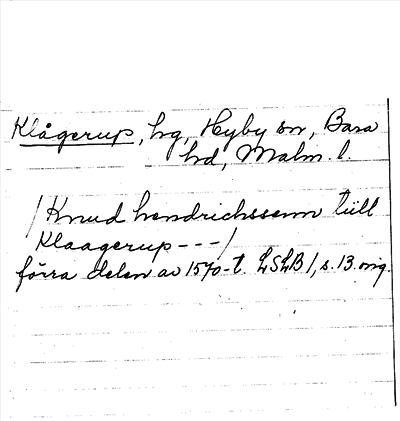 Klågerup, hg, Hyby sn, Bara
hd, Malm. l.
/Knud hendrichssenn tiill
Klaagerup---/
förra delen av 1570-t. LSLB 1, s. 13. orig.